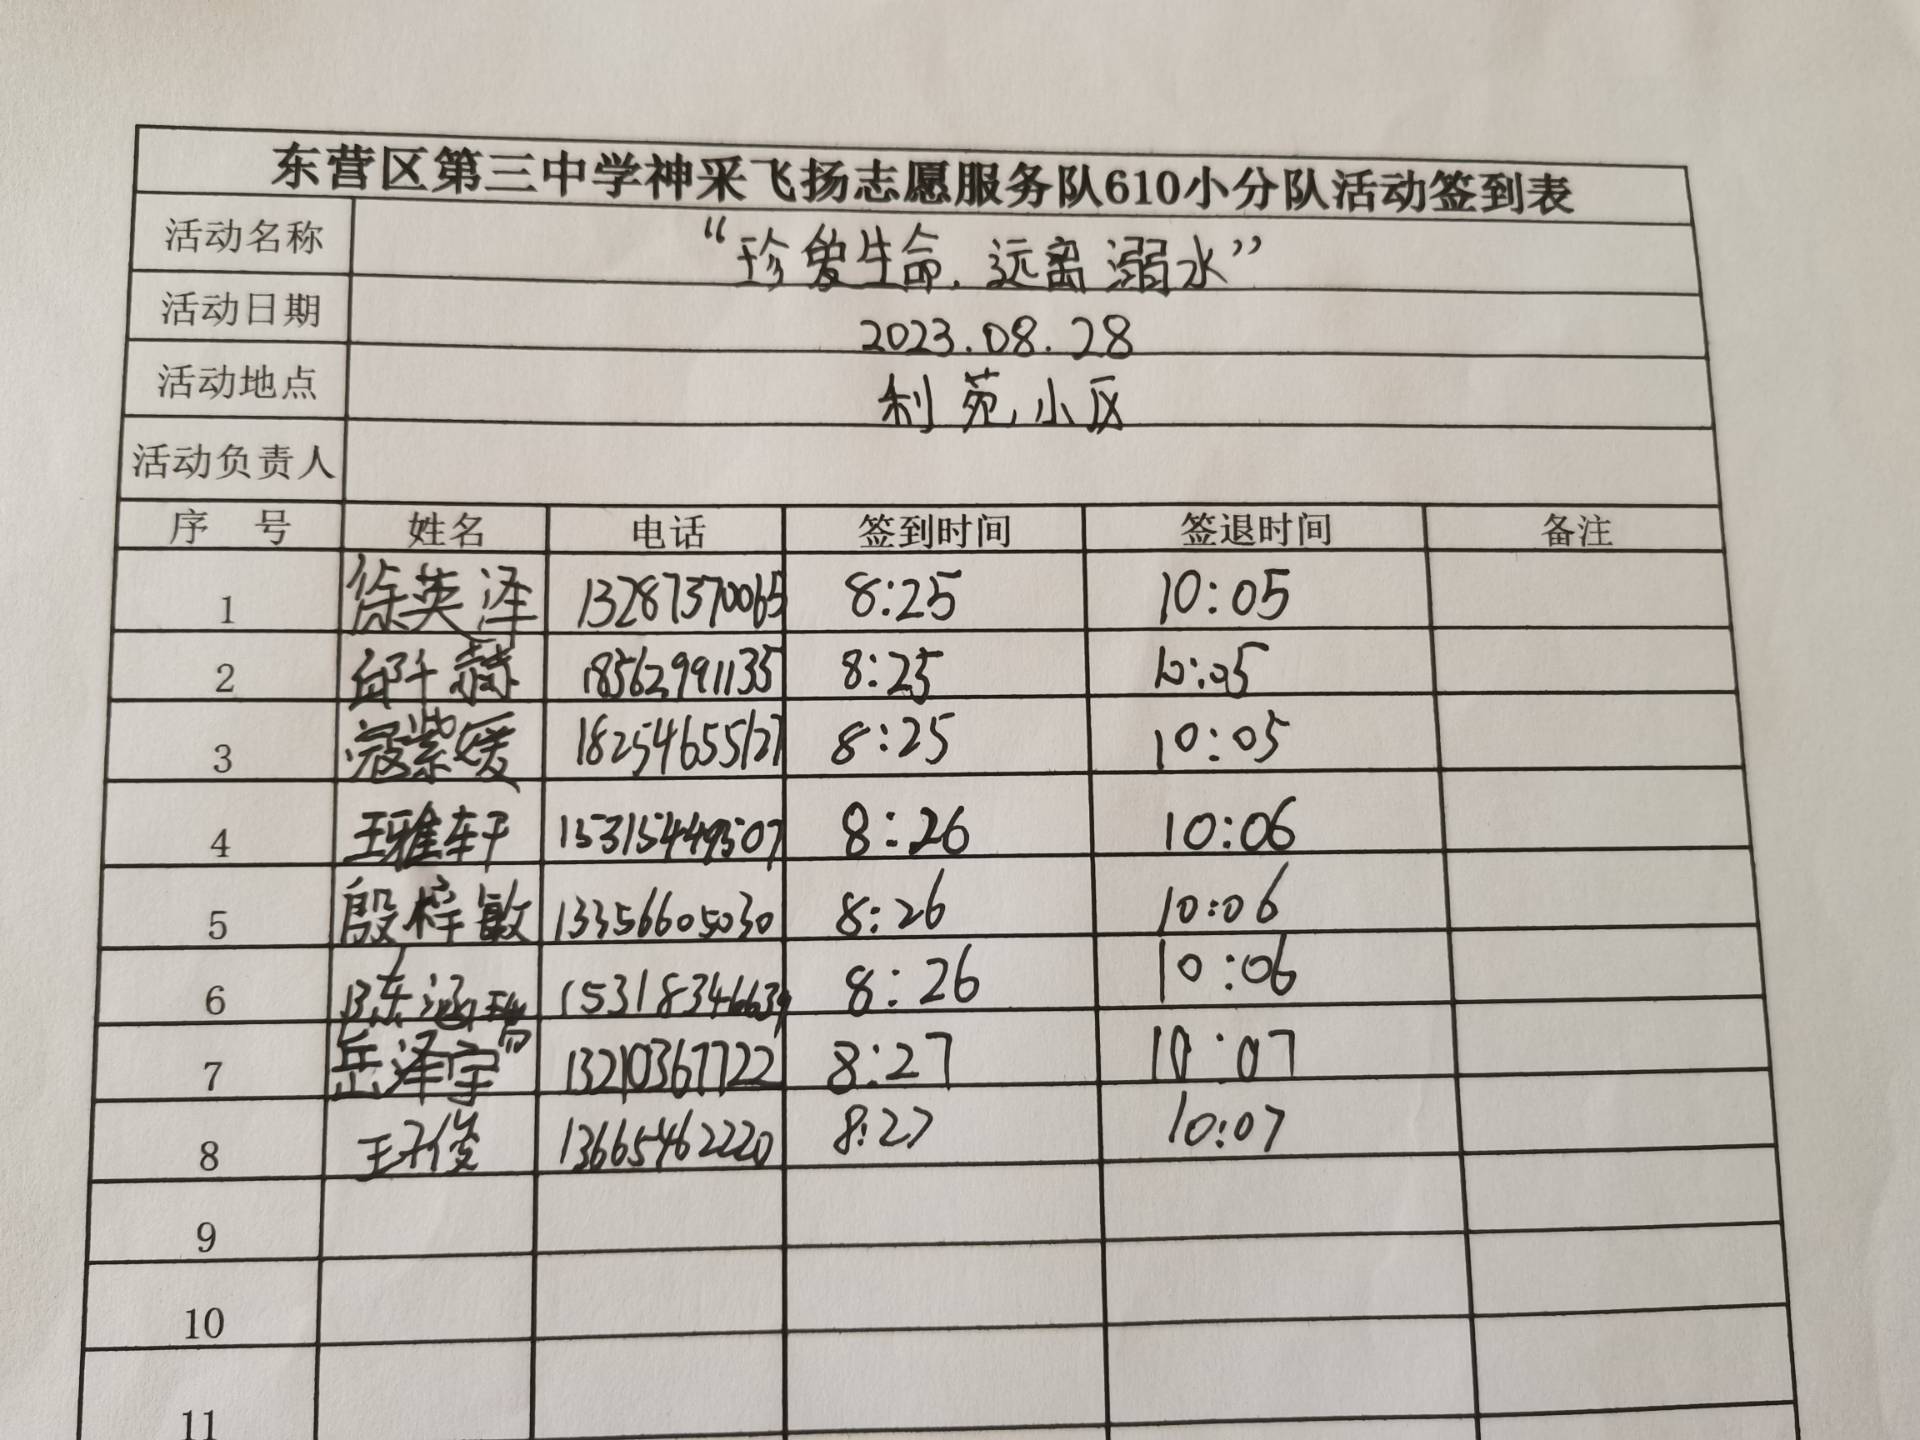 东营区第三中学神采飞扬志愿服务队610小分队活动签到表
活动名称 “珍爱生命,远离溺水”
活动日期 2023.08.28
活动地点 利苑小区
活动负责人
序 号 姓名 电话 签到时间 签退时间 备注
1 徐英泽 13287370065 8:25 10:05
2 邱千赫 18562991135 8:25 10:05
3 寇紫媛 18254655127 8:25 10:05
4 王雅轩 15315449507 8:26 10:06
5 殷梓敏 13356605030 8:26 10:06
6 陈涵瑞 15318346639 8:26 10:06
7 岳泽宇 13210367722 8:27 10:07
8 王子俊 13665462220 8:27 10:07
9
10
11